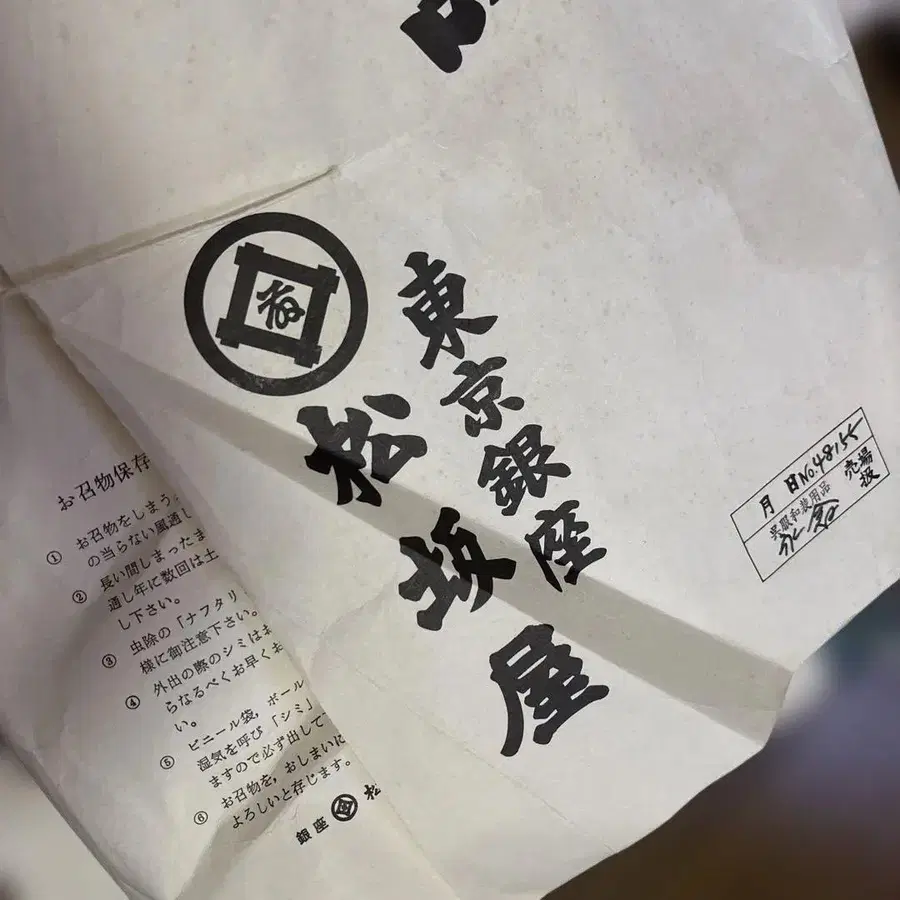 東京銀座
松坂屋
月 日 No.48155
呉服和装用品
売場
扱
お召物保存
① お召物をしまう
の当らない風通し
② 長い間しまったま
通し年に数回は土
し下さい。
③ 虫除の「ナフタリ
様に御注意下さい。
④ 外出の際のシミはお
らなるべくお早くお
い。
⑤ ビニール袋,ボール
湿気を呼び「シミ」
ますので必ず出して
⑥ お召物を,おしまいに
よろしいと存じます。
銀座 松